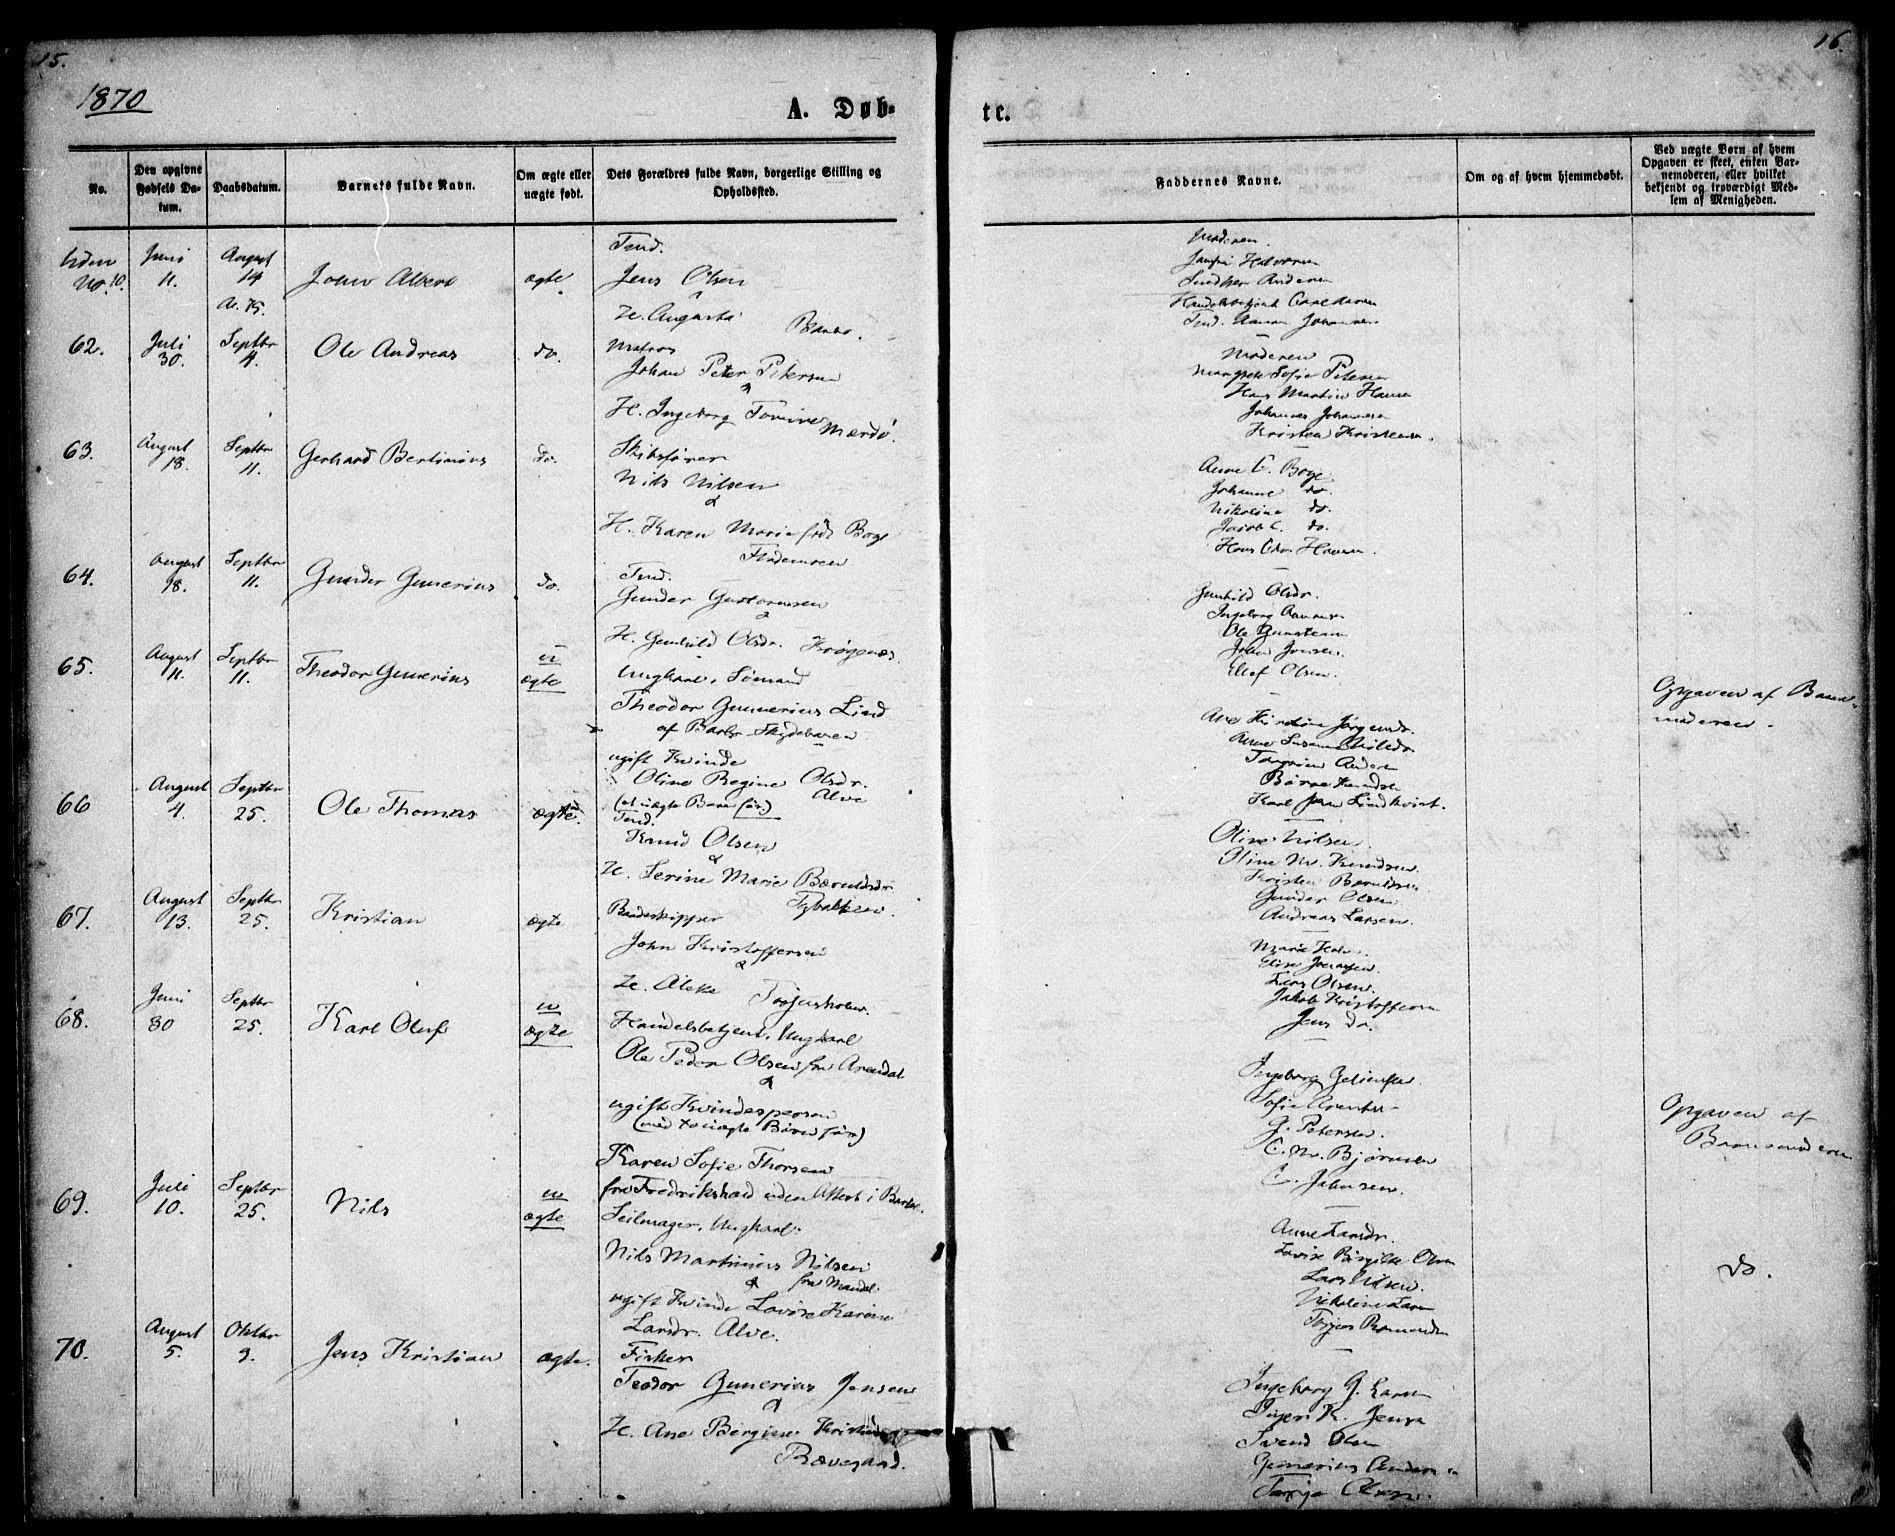 15.
16.
1870
A. Døb-
te.
No.
Den opgivne Fødsels Da-tum.
Daabsdatum.
Barnets fulde Navn.
Om ægte eller uægte født.
Dets Forældres fulde Navn, borgerlige Stilling og Opholdssted.
Faddernes Navne.
Om og af hvem hjemmedøbt.
Ved uægte Børn af hvem Opgaven er skeet, enten Bar-nemoderen, eller hvilket bekjendt og troværdigt Med-lem af Menigheden.
uden No. 10.
Juni 11.
August 14
John Albert
ægte
Tind.
Jens Olsen
&
H. Augusta
Moderen
62.
Juli 30.
Septbr 4.
Ole Andreas
do.
Matros
Johan Peter Petersen
&
H. Ingeborg Tomine
Mærdø.
Moderen
Margrete Sofie Petersen
Hans Martin Hansen
Johannes Johannesen
Kristen Kristensen.
63.
August 18.
Septbr 11.
Gerhard Bertinius
do.
Skibsfører
Nils Nilsen
&
H. Karen Marie født Boye
Anne C. Boye
Johanne do.
Nikoline do.
Jacob C. do.
Hans Chr. Hansen.
64.
August 18.
Septbr 11.
Gunder Gunerius
do.
Tind.
Gunder Gustavussen
&
H. Gunhild Olsdr. Krøgenæs.
Gunhild Olsdr.
Ingeborg
Ole
John Jensen
Ellef Olsen.
65.
August 11.
Septbr 11.
Theodor Gunerius
u
ægte
Ungkarl, Sømand
Theodor Gunnerius Lind
af Barbo Skydebanen
ugift Kvinde
Oline Regine Olsdr.
Alve
(et uægte Barn før)
Ane Kirstine Jørgensdr.
Anne Susanne Nilsdr.
Børre Knudsen
Karl Lindkvist.
Opgaven af Barne-
moderen.
66
August 4.
Septbr 25.
Ole Thomas
ægte.
Tind.
Knud Olsen
&
H. Serine Marie Berntsdr.
Tybakken.
Oline Nilsen.
Oline M. Knudsen
Kristen Berntsen
Gunder Olsen
Andreas Larsen.
67.
August 13.
Septbr 25.
Kristian
ægte
Baadskipper
John Kristoffersen
&
H. Aleke Torjusholmen.
Marie
Elise Joensen.
Lars Olsen.
Jakob Kristoffersen
Jens do.
68.
Juni 30
Septbr 25.
Karl Oluf
u
ægte
Handelsbetjent, Ungkarl
Ole Peder Olsen fra Arendal
&
ugift Kvindesperson
(med to uægte Børn før)
Karen Sofie Thorsen
fra Fredrikshald uden Attest i Barbo.
Ingeborg
Sofie
G. Petersen.
C. M. Bjørnsen
C. Jahnsen.
Opgaven af
Barnemoderen
69.
Juli 10.
Septbr 25.
Nils
u
ægte
Seilmager, Ungkarl.
Nils Martinius Nilsen
& fra Mandal.
ugift Kvinde Lovise Karine
Larsdr. Alve.
Anne Larsdr.
Lovise Birgitte Olsen
Lars Nilsen.
Nikoline Larsen
do.
70.
August 5.
Oktbr 9.
Jens Kristian
ægte.
Fisker
Teodor Gunerius Jensen
&
H. Ane Bergine
Rævesand.
Ingeborg G. Larsen
Inger K. Jensen
Svend Olsen
Gunerius Andersen
Terje Olsen.